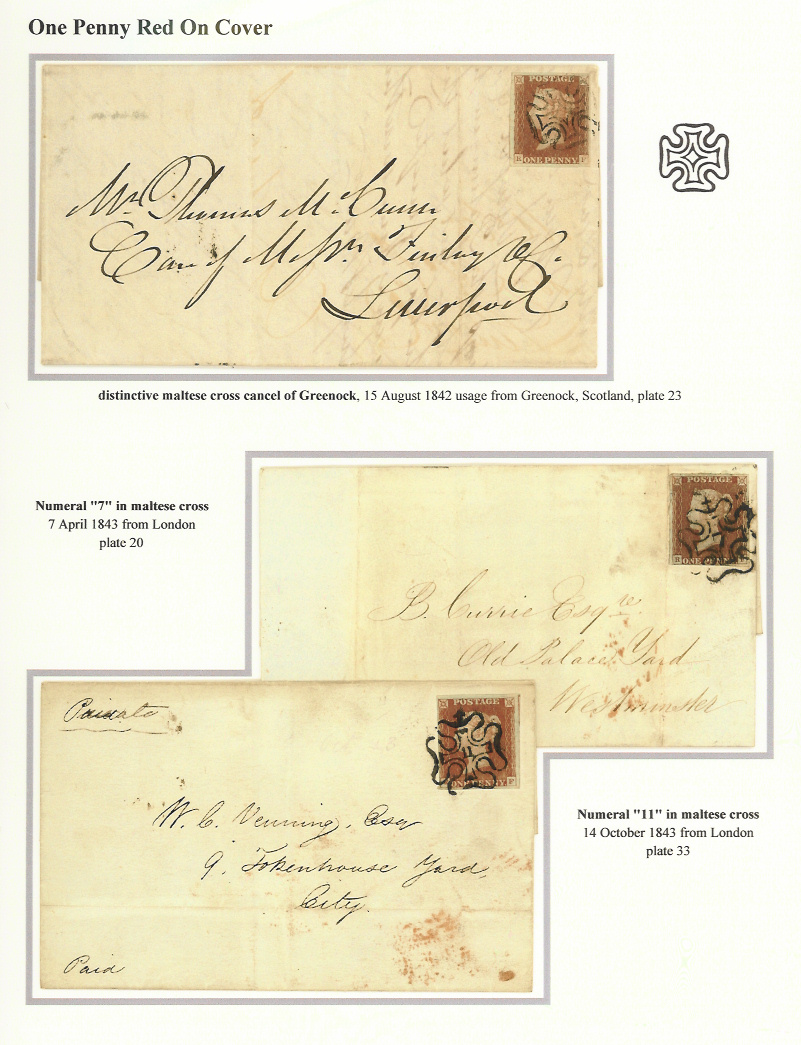 One Penny Red On Cover
POSTAGE
ONE PENNY
Mr. Thomas McCunn
Care of Messrs. Finlay & Co.
Liverpool
distinctive maltese cross cancel of Greenock, 15 August 1842 usage from Greenock, Scotland, plate 23
Numeral "7" in maltese cross
7 April 1843 from London
plate 20
POSTAGE
ONE PENNY
B. Currie Esqre.
Old Palace Yard
Westminster
Private
POSTAGE
ONE PENNY
W. C. Venning, Esq
9, Tokenhouse Yard,
City.
Paid
Numeral "11" in maltese cross
14 October 1843 from London
plate 33